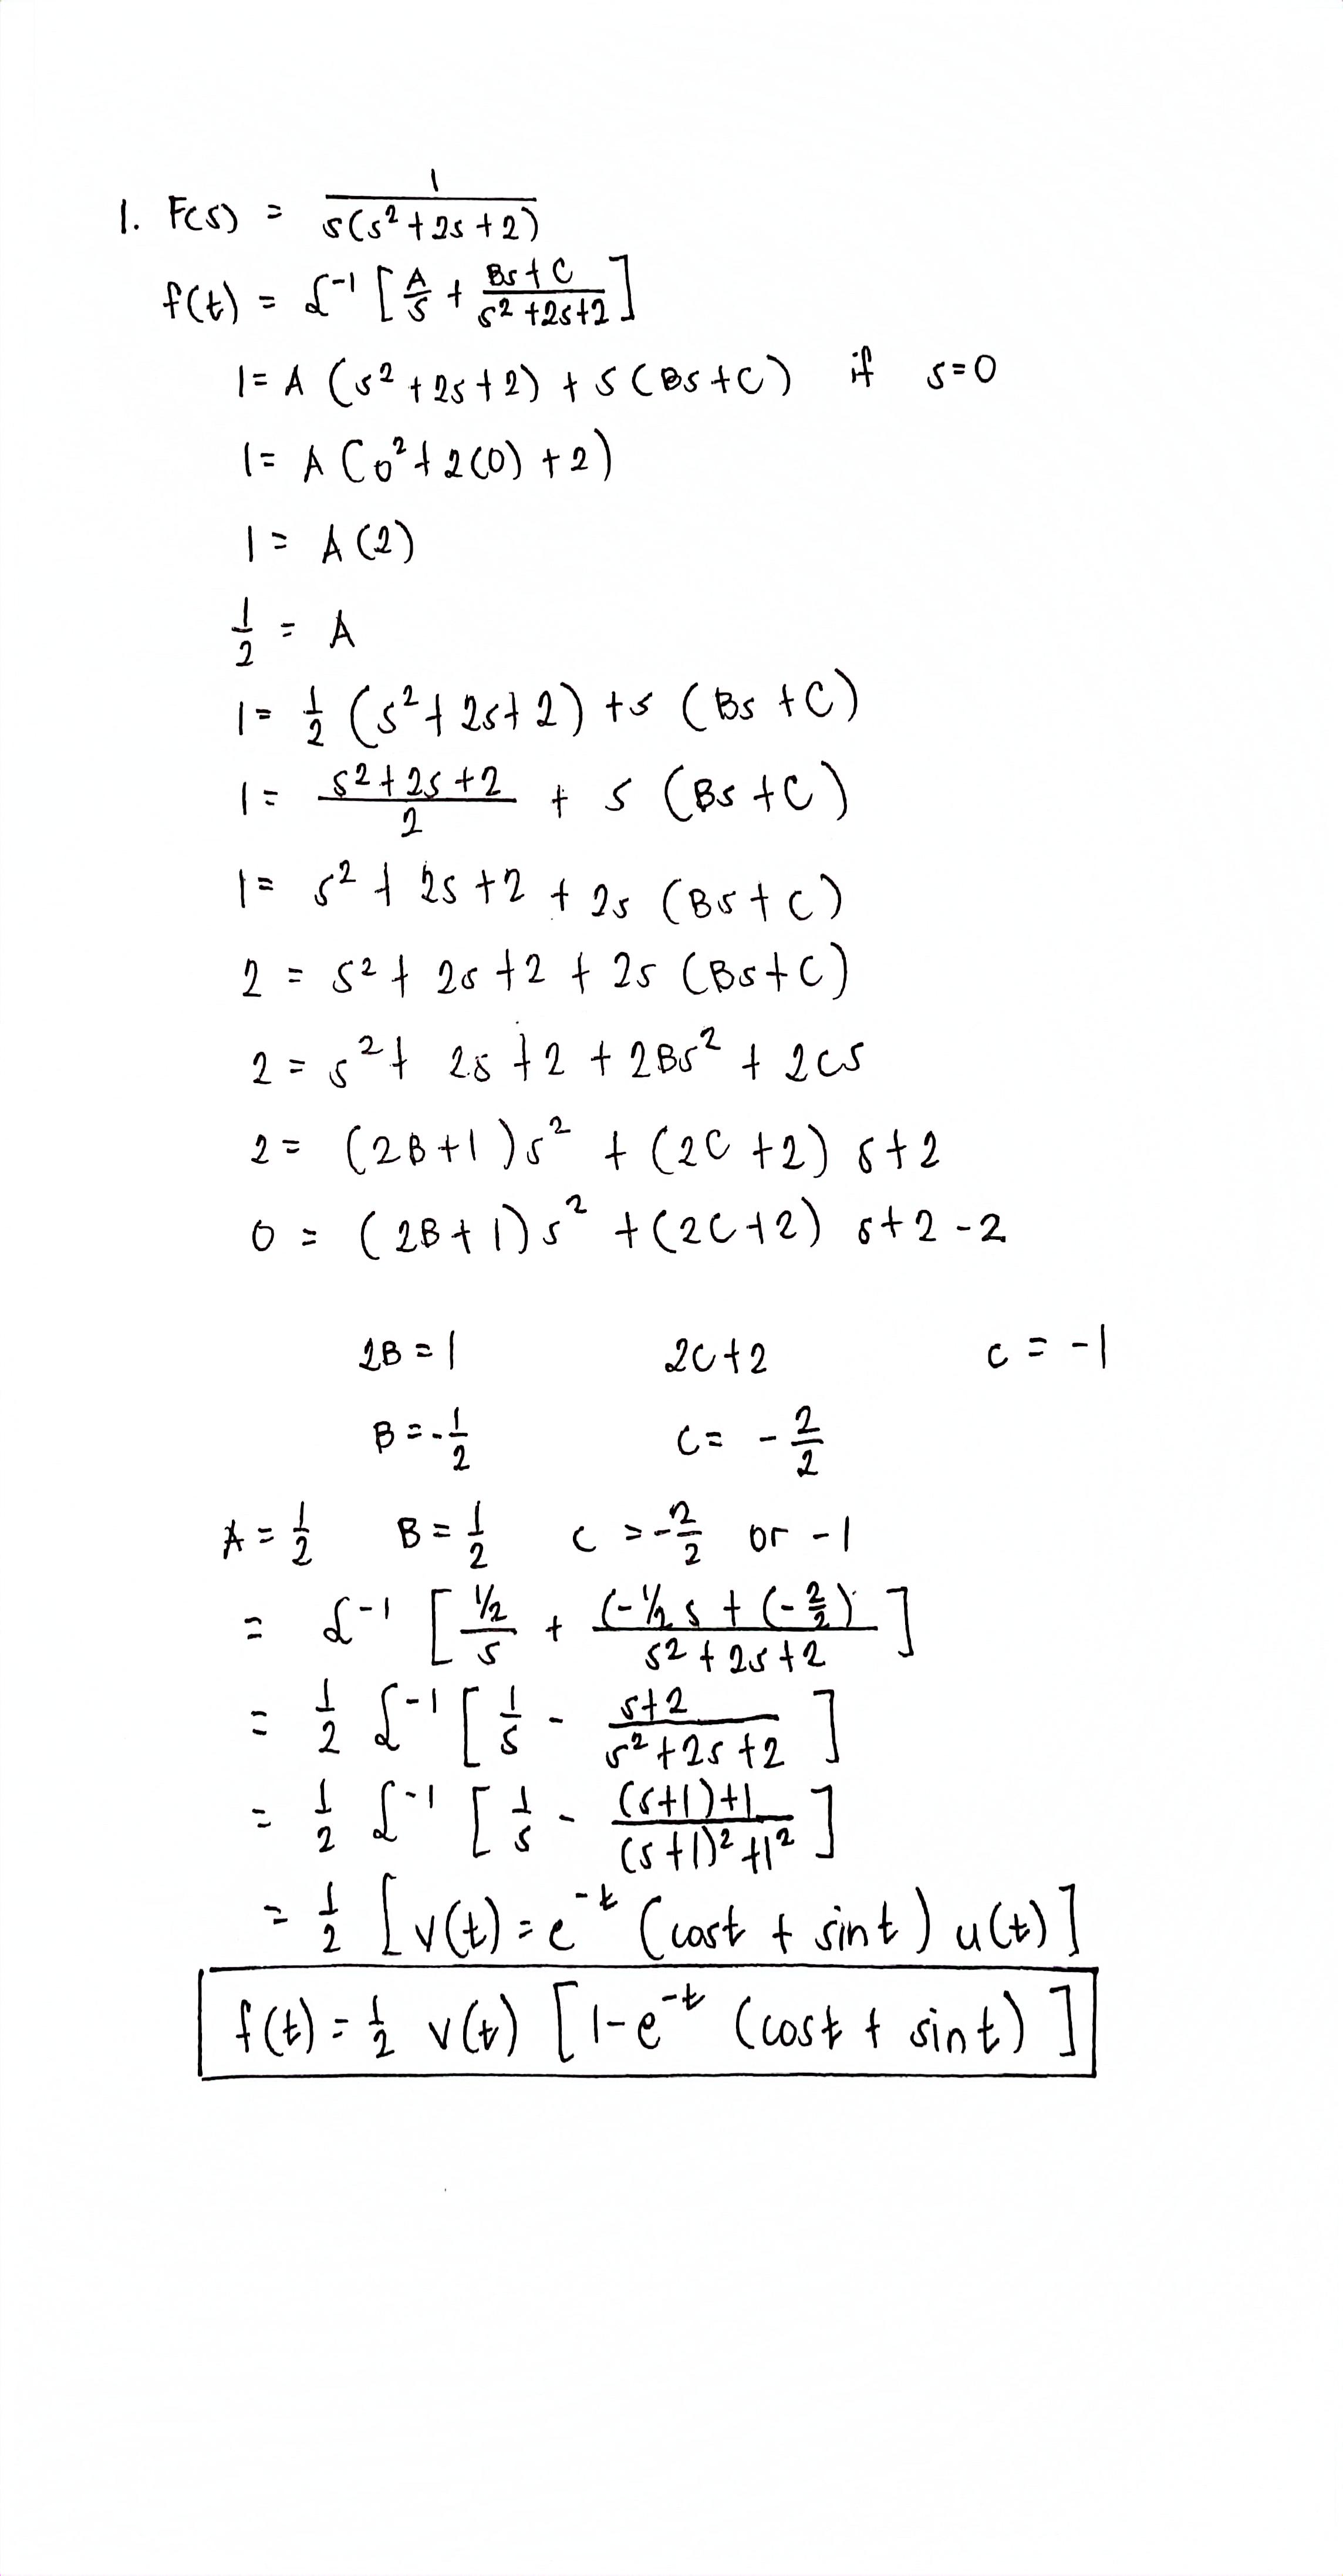 1. F(s) = 1/s(s²+2s+2)
f(t) = ℒ⁻¹ [A/s + Bs+C/s²+2s+2]
1 = A (s²+2s+2) + s (Bs+C) if s=0
1 = A (0²+2(0)+2)
1 = A (2)
1/2 = A
1 = 1/2 (s²+2s+2) + s (Bs+C)
1 = s²+2s+2/2 + s (Bs+C)
1 = s²+2s+2 + 2s (Bs+C)
2 = s²+2s+2 + 2s (Bs+C)
2 = s²+2s+2+2Bs²+2Cs
2 = (2B+1)s² + (2C+2) s+2
0 = (2B+1)s² + (2C+2) s+2-2
2B = 1 2C+2 C = -1
B = -1/2 C = -2/2
A = 1/2 B = 1/2 C = -2/2 or -1
= ℒ⁻¹ [1/2/s + (-1/2 s + (-2/2)/s²+2s+2]
= 1/2 ℒ⁻¹ [1/s - s+2/s²+2s+2]
= 1/2 ℒ⁻¹ [1/s - (s+1)+1/(s+1)²+1²]
= 1/2 [v(t) = e⁻ᵗ (cost + sint) u(t)]
f(t) = 1/2 v(t) [1-e⁻ᵗ (cost + sint)]